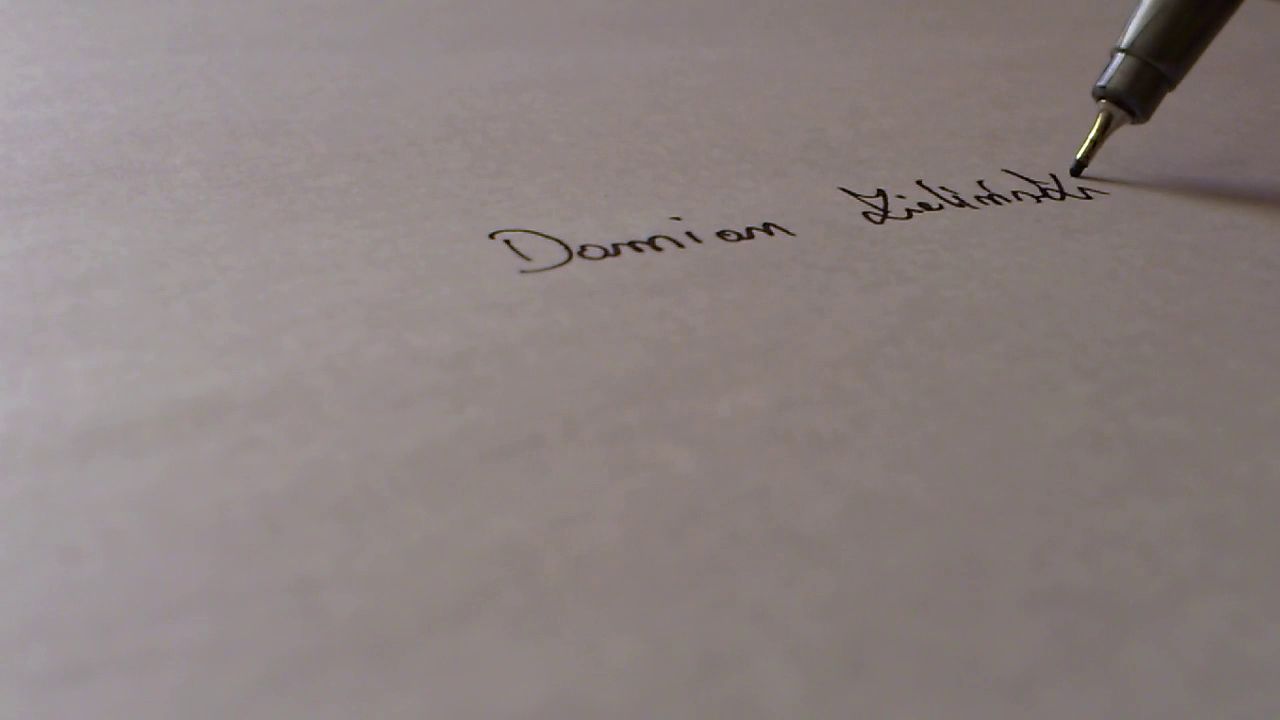 Damian Zieliński